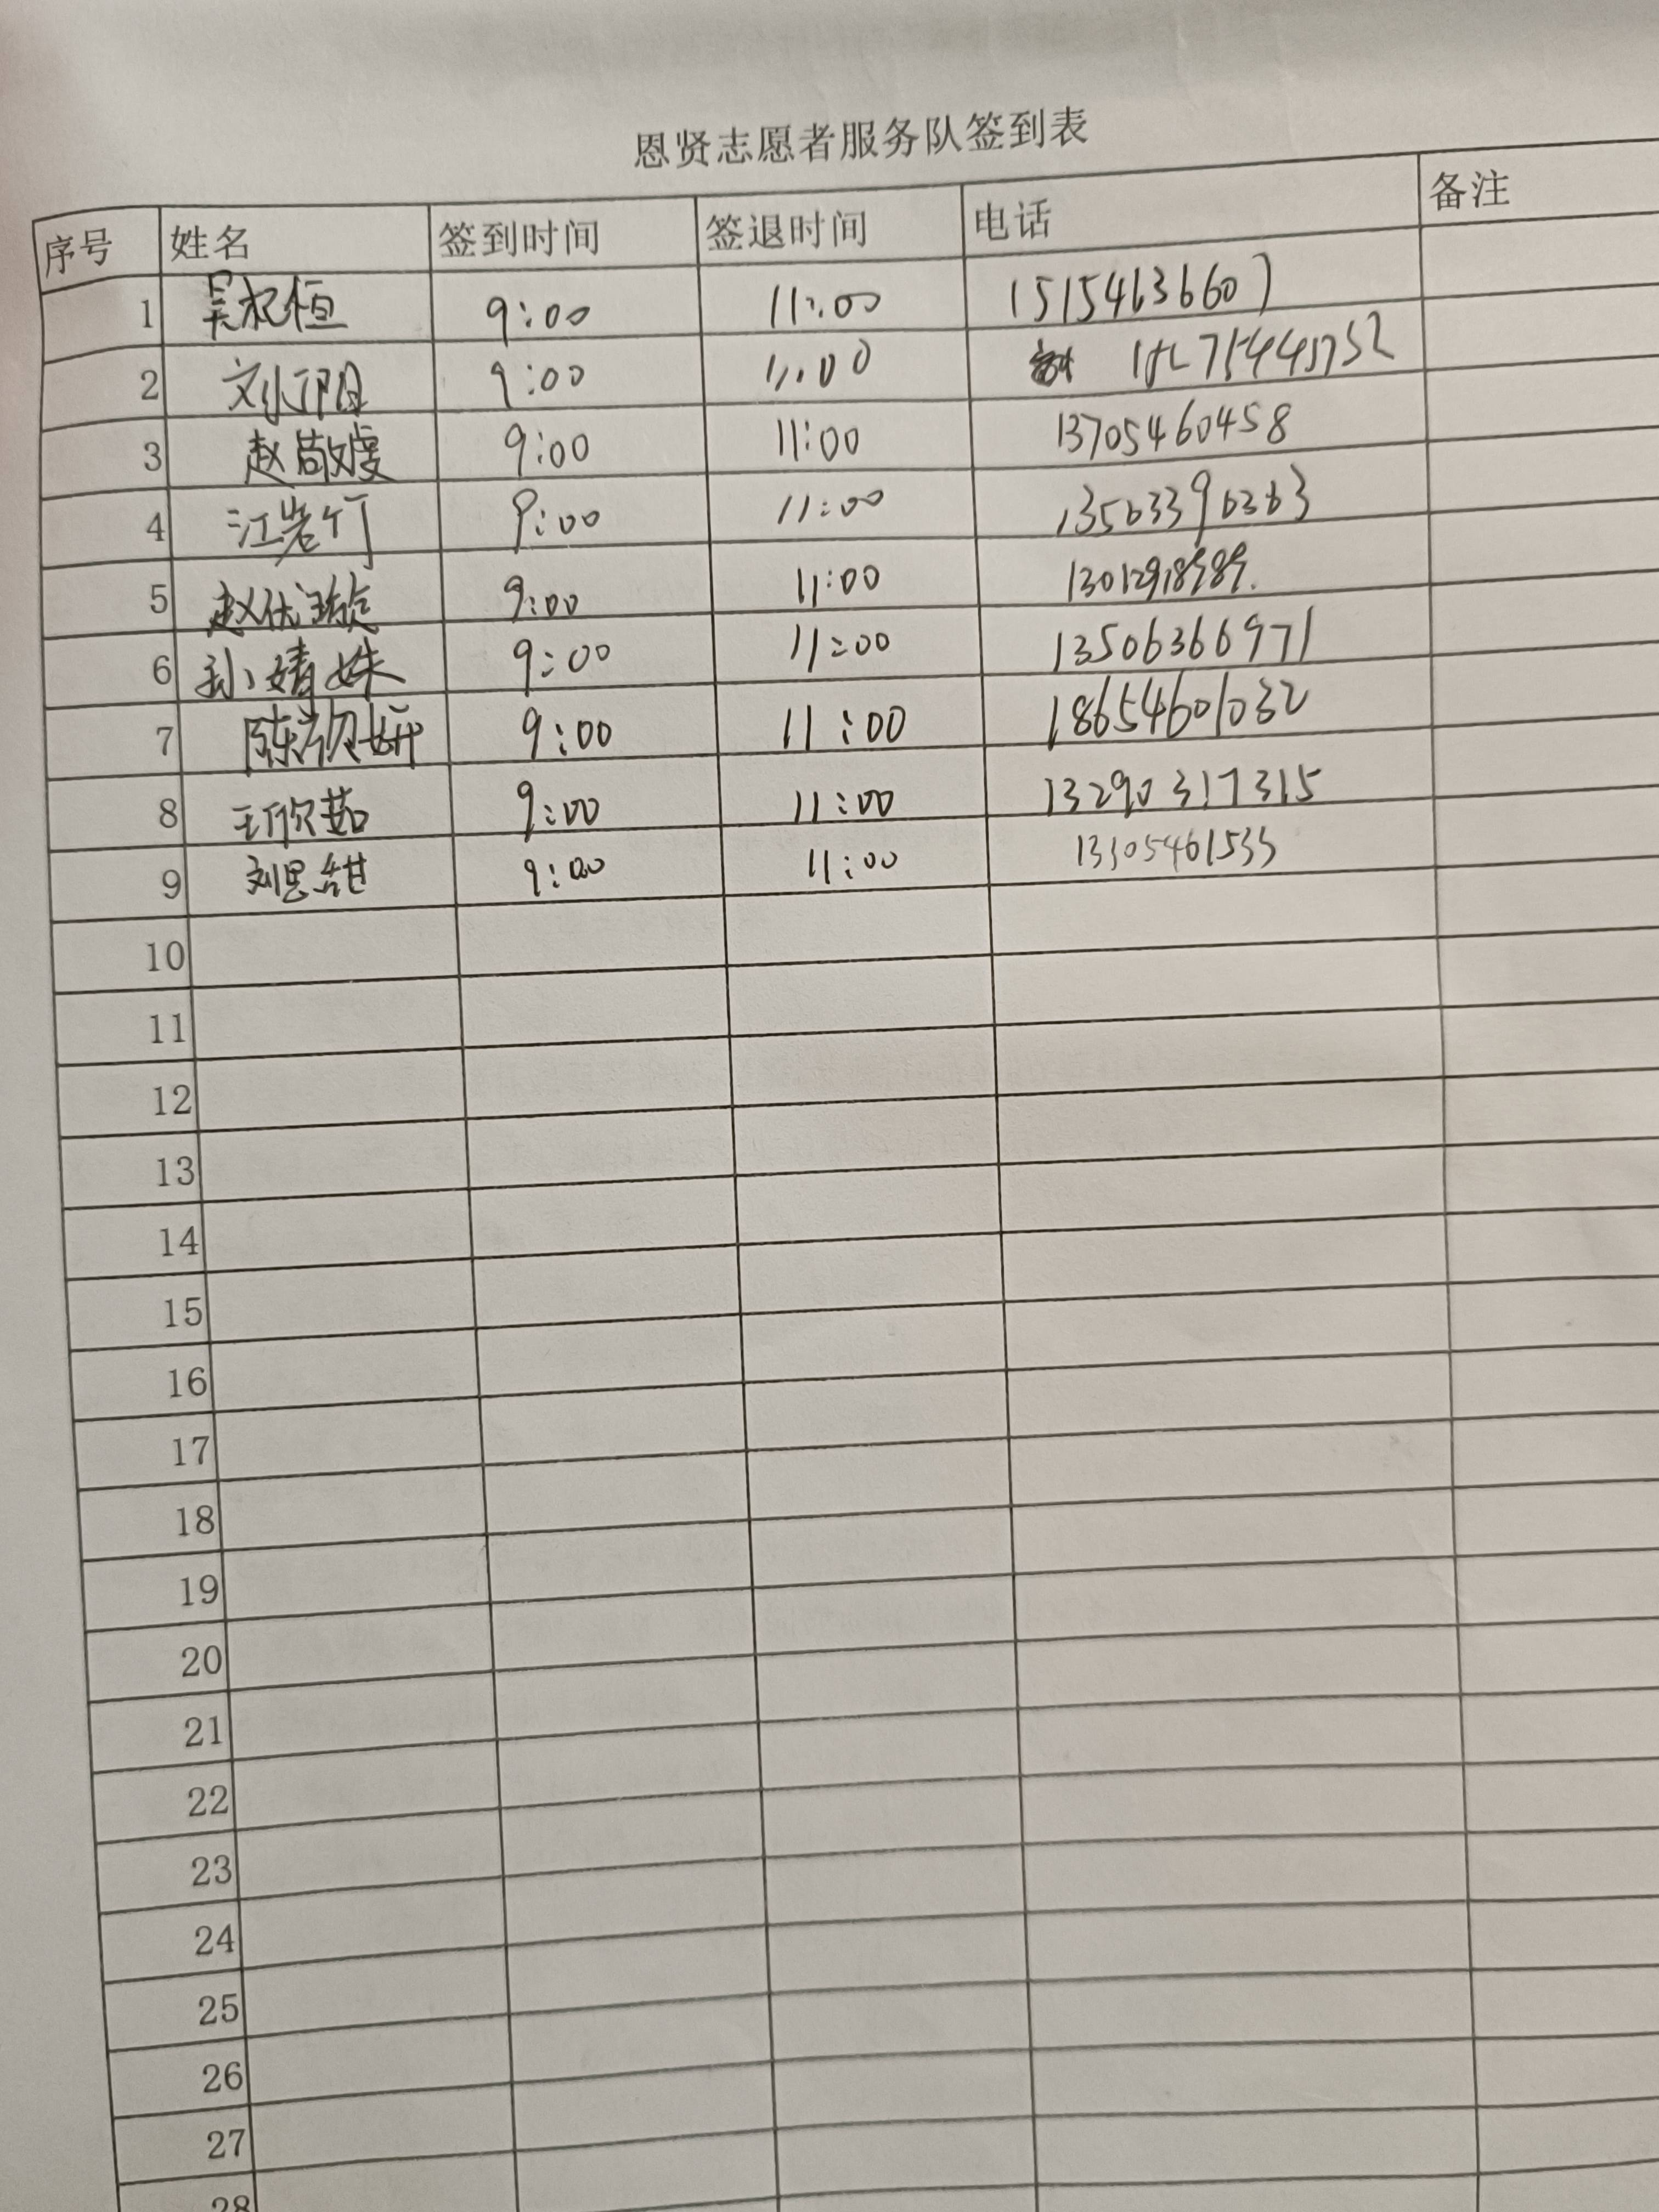 恩贤志愿者服务队签到表
序号 姓名 签到时间 签退时间 电话 备注
1 吴祝恒 9:00 11:00 15154636607
2 刘邛阳 9:00 11:00
3 赵敬虔 9:00 11:00 13705460458
4 江岩竹 9:00 11:00 13563396363
5 赵优璇 9:00 11:00 13012918989.
6 孙婧姝 9:00 11:00 13506366971
7 陈妍 9:00 11:00 18654601032
8 王欣茹 9:00 11:00 13290317315
9 刘思甜 9:00 11:00 13305461533
10
11
12
13
14
15
16
17
18
19
20
21
22
23
24
25
26
27
28